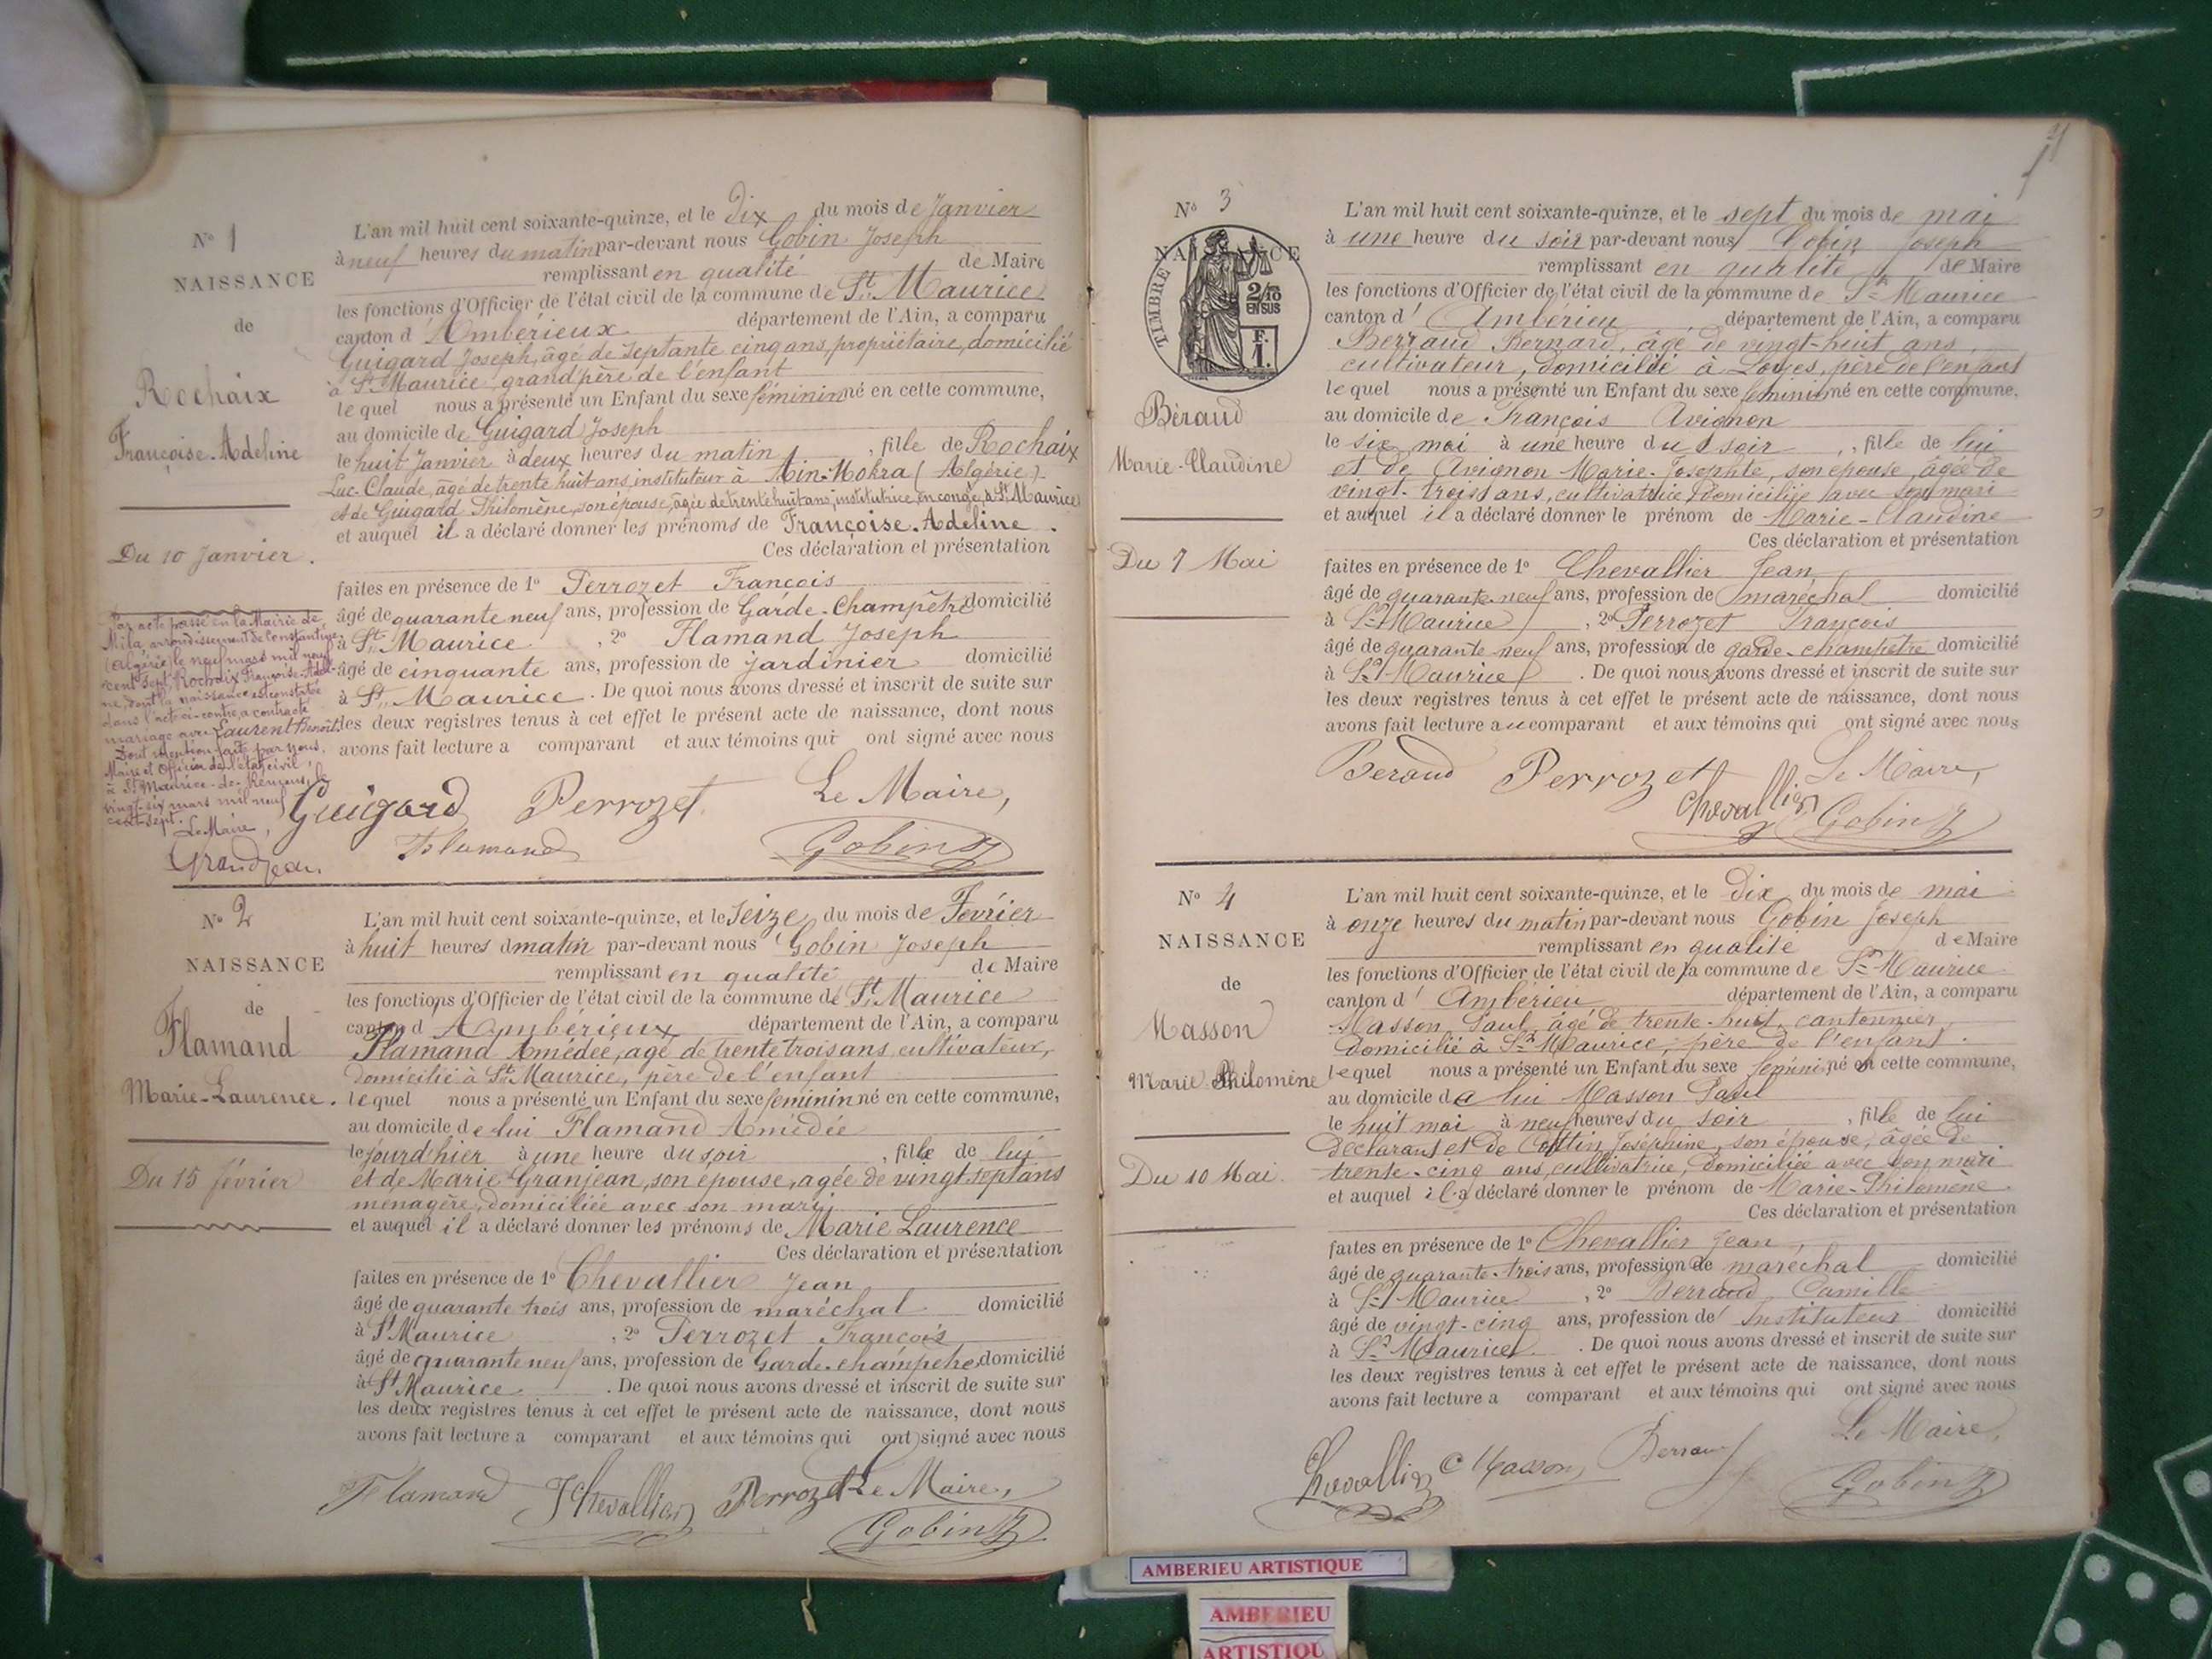 N° 1
NAISSANCE
de
Rochaix
Françoise-Adeline
Du 10 Janvier.
Par acte passé en la Mairie de
Mila, arrondissement de Constantine
(Algérie) le neuf mars mil neuf
cent sept, Rochaix Françoise-Adeli-
ne, dont la naissance est constatée
dans l'acte ci-contre, a contracté
mariage avec Laurent Benoit.
Dont mention faite par nous,
Maire et Officier de l'état civil
à St Maurice-de-Rémens, le
vingt-six mars mil neuf
cent sept.
Le Maire,
Grandjean
L'an mil huit cent soixante-quinze, et le Dix du mois de Janvier
à neuf heures du matin par-devant nous Gobin Joseph
remplissant en qualité de Maire
les fonctions d'Officier de l'état civil de la commune de St Maurice
canton d'Ambérieux département de l'Ain, a comparu
Guigard Joseph, âgé de septante cinq ans, propriétaire, domicilié
à St Maurice grand père de l'enfant
lequel nous a présenté un Enfant du sexe féminin né en cette commune,
au domicile de Guigard Joseph
le huit Janvier à deux heures du matin, fille de Rochaix
Luc-Claude, âgé de trente huit ans, instituteur à Ain-Mokra (Algérie)
et de Guigard Philomène, son épouse, âgée de trente huit ans, institutrice en congé, à St Maurice
et auquel il a déclaré donner les prénoms de Françoise-Adeline.
Ces déclaration et présentation
faites en présence de 1° Perrozet François
âgé de quarante neuf ans, profession de Garde-Champêtre domicilié
à St Maurice, 2° Flamand Joseph
âgé de cinquante ans, profession de jardinier domicilié
à St Maurice. De quoi nous avons dressé et inscrit de suite sur
les deux registres tenus à cet effet le présent acte de naissance, dont nous
avons fait lecture a comparant et aux témoins qui ont signé avec nous
Guigard Perrozet Le Maire,
Flamand Gobin J
N° 2
NAISSANCE
de
Flamand
Marie-Laurence.
Du 15 février
L'an mil huit cent soixante-quinze, et le Seize du mois de Février
à huit heures d matin par-devant nous Gobin Joseph
remplissant en qualité de Maire
les fonctions d'Officier de l'état civil de la commune de St Maurice
canton d'Ambérieux département de l'Ain, a comparu
Flamand Amédée, agé de trente trois ans, cultivateur,
domicilié à St Maurice, père de l'enfant
lequel nous a présenté un Enfant du sexe féminin né en cette commune,
au domicile de lui Flamand Amédée
le jourd'hier à une heure du soir, fille de lui
et de Marie Granjean, son épouse, agée de vingt sept ans
ménagère, domiciliée avec son mari
et auquel il a déclaré donner les prénoms de Marie Laurence
Ces déclaration et présentation
faites en présence de 1° Chevallier Jean
âgé de quarante trois ans, profession de maréchal domicilié
à St Maurice, 2° Perrozet François
âgé de quarante neuf ans, profession de Garde-champetre domicilié
à St Maurice. De quoi nous avons dressé et inscrit de suite sur
les deux registres tenus à cet effet le présent acte de naissance, dont nous
avons fait lecture a comparant et aux témoins qui ont signé avec nous
Flamand J Chevallier Perrozet Le Maire,
Gobin J
N° 3
NAISSANCE
TIMBRE
2/10
EN SUS
F.
1.
Béraud
Marie-Claudine
Du 7 Mai
L'an mil huit cent soixante-quinze, et le sept du mois de mai
à une heure du soir par-devant nous Gobin Joseph
remplissant en qualité de Maire
les fonctions d'Officier de l'état civil de la commune de St Maurice
canton d'Ambérieu département de l'Ain, a comparu
Berraud Bernard, âgé de vingt-huit ans,
cultivateur, domicilié à Loyes, père de l'enfant
lequel nous a présenté un Enfant du sexe féminin né en cette commune,
au domicile de François Avignon
le six mai à une heure du soir, fille de lui
et de Avignon Marie-Josephte, son épouse, âgée de
vingt-trois ans, cultivatrice domiciliée avec son mari
et auquel il a déclaré donner le prénom de Marie-Claudine
Ces déclaration et présentation
faites en présence de 1° Chevallier Jean,
âgé de quarante-neuf ans, profession de maréchal domicilié
à St Maurice, 2° Perrozet François
âgé de quarante neuf ans, profession de garde-champêtre domicilié
à St Maurice. De quoi nous avons dressé et inscrit de suite sur
les deux registres tenus à cet effet le présent acte de naissance, dont nous
avons fait lecture au comparant et aux témoins qui ont signé avec nous
Beraud Perrozet Le Maire,
Chevallier Gobin J
N° 4
NAISSANCE
de
Masson
Marie Philomène
Du 10 Mai.
L'an mil huit cent soixante-quinze, et le Dix du mois de mai
à onze heures du matin par-devant nous Gobin Joseph
remplissant en qualité de Maire
les fonctions d'Officier de l'état civil de la commune de St Maurice
canton d'Ambérieu département de l'Ain, a comparu
Masson Paul, âgé de trente-huit, cantonnier,
domicilié à St Maurice, père de l'enfant.
lequel nous a présenté un Enfant du sexe féminin né en cette commune,
au domicile de lui Masson Paul
le huit mai à neuf heures du soir, fille de lui
déclarant et de Cottin Joséphine, son épouse, âgée de
trente-cinq ans, cultivatrice, domiciliée avec son mari
et auquel il a déclaré donner le prénom de Marie-Philomène.
Ces déclaration et présentation
faites en présence de 1° Chevallier Jean,
âgé de quarante-trois ans, profession de maréchal domicilié
à St Maurice, 2° Berraud Camille
âgé de vingt-cinq ans, profession de Instituteur domicilié
à St Maurice. De quoi nous avons dressé et inscrit de suite sur
les deux registres tenus à cet effet le présent acte de naissance, dont nous
avons fait lecture a comparant et aux témoins qui ont signé avec nous
Chevallier C Masson Berraud Le Maire,
Gobin J
AMBERIEU ARTISTIQUE
AMBERIEU
ARTISTIQU